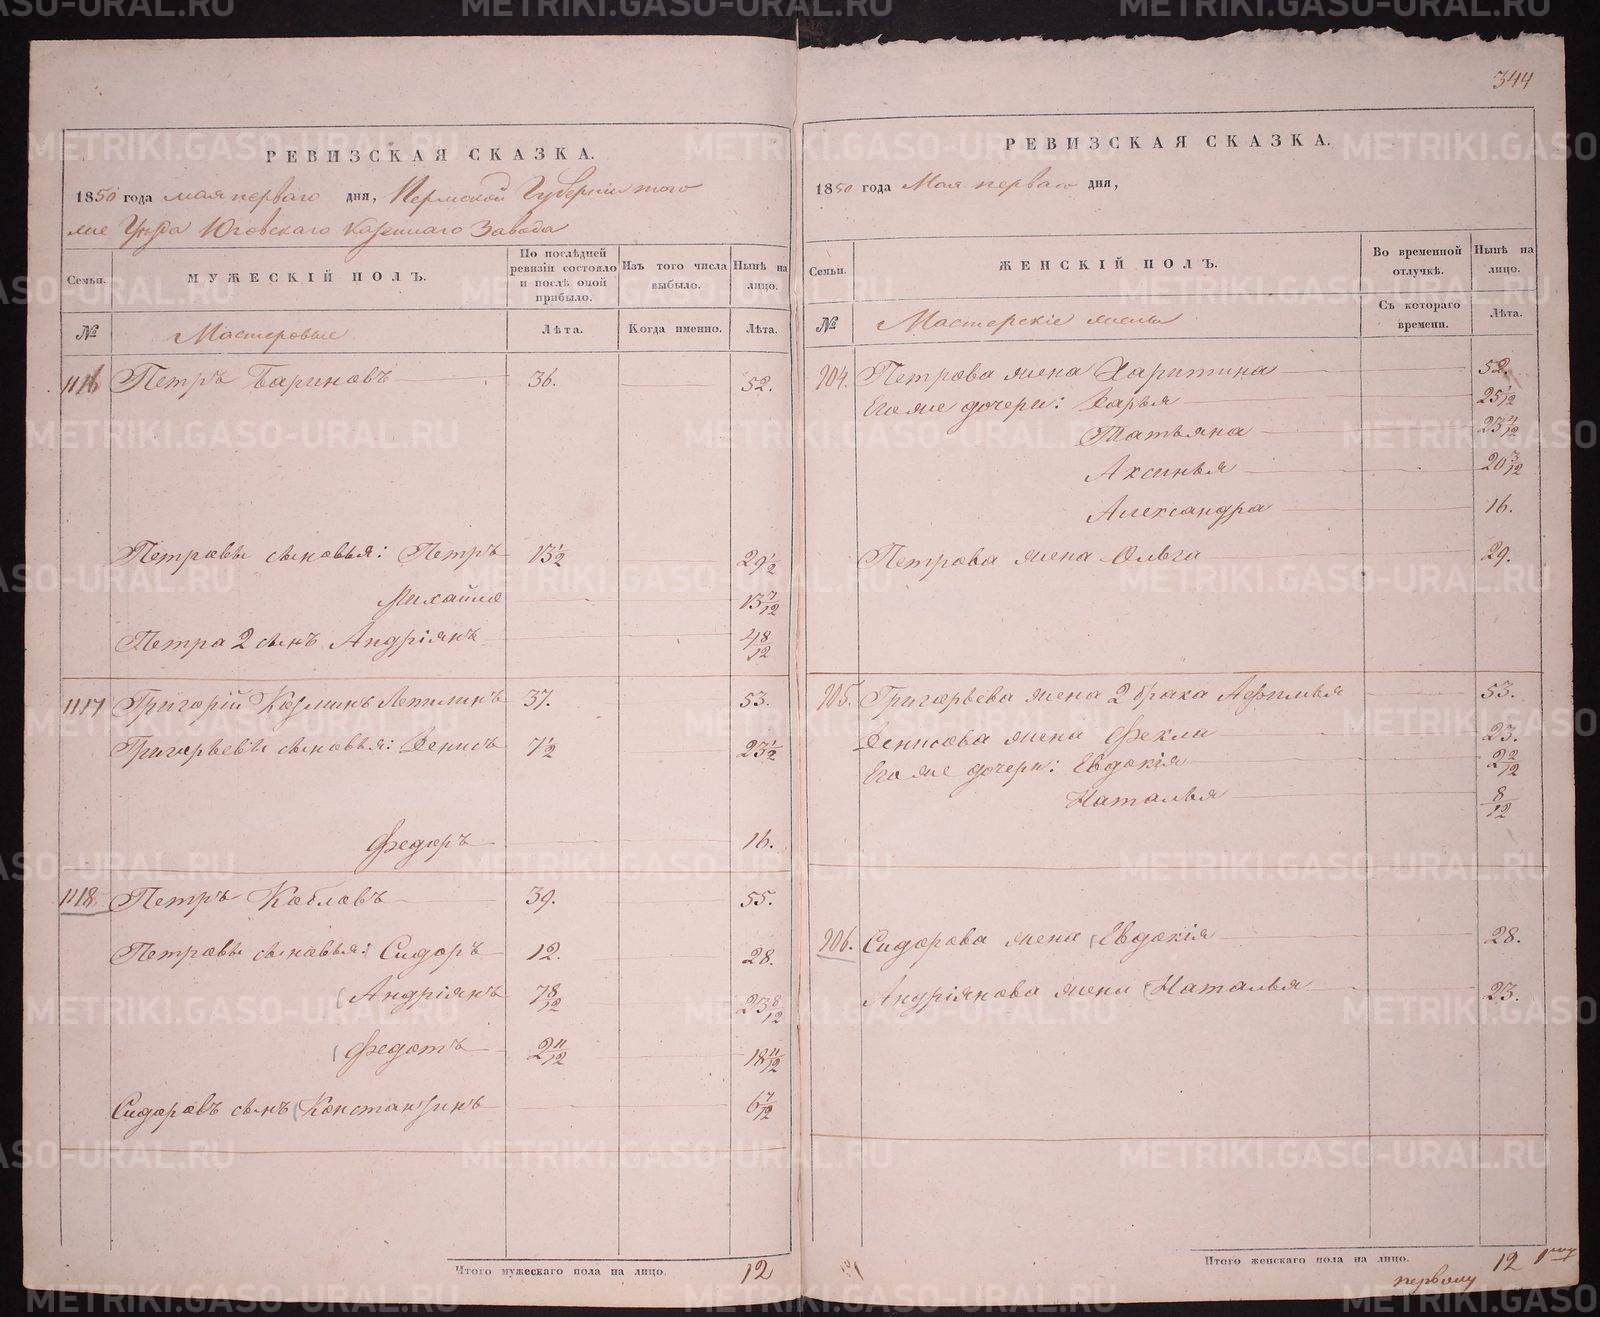 344
РЕВИЗСКАЯ СКАЗКА.
1850 года мая перваго дня, Пермской Губернии того
же Уѣзда Юговскаго Казеннаго Завода
Семьи.
МУЖЕСКІЙ ПОЛЪ.
По послѣдней ревизіи состояло и послѣ оной прибыло.
Изъ того числа выбыло.
Нынѣ на лицо.
№ Мастеровые Лѣта. Когда именно. Лѣта.
1116 Петръ Бариновъ 36. 52.
Петровы сыновья: Петръ 13 1/2 29 1/2
Михайло 13 7/12
Петра 2 сынъ Андріянъ 4 8/12
1117 Григорій Козминъ 37. 53.
Григорьевы сыновья: Денисъ 7 1/2 23 1/2
Федоръ 16.
1118 Петръ Кобловъ 39. 55.
Петровы сыновья: Сидоръ 12. 28.
Андріянъ 7 8/12 23 8/12
Федотъ 2 11/12 18 11/12
Сидоровъ сынъ Константинъ 6 7/12
Итого мужескаго пола на лицо. 12
РЕВИЗСКАЯ СКАЗКА.
1850 года Мая перваго дня,
Семьи.
ЖЕНСКІЙ ПОЛЪ.
Во временной отлучкѣ.
Нынѣ на лицо.
Съ котораго времени.
Лѣта.
№ Мастерскіе жены
904. Петрова жена Харитина 52.
Его же дочери: Дарья 25 1/12
Татьяна 23 4/12
Аксинья 20 3/12
Александра 16.
Петрова жена Ольга 29.
905. Григорьева жена 2 брака Афимья 53.
Денисова жена Фекла 23.
Его же дочери: Евдокія 2 2/12
Наталья 8/12
906. Сидорова жена Евдокія 28.
Андріянова жена Наталья 23.
Итого женскаго пола на лицо. 12
первому
METRIKI.GASO-URAL.RU